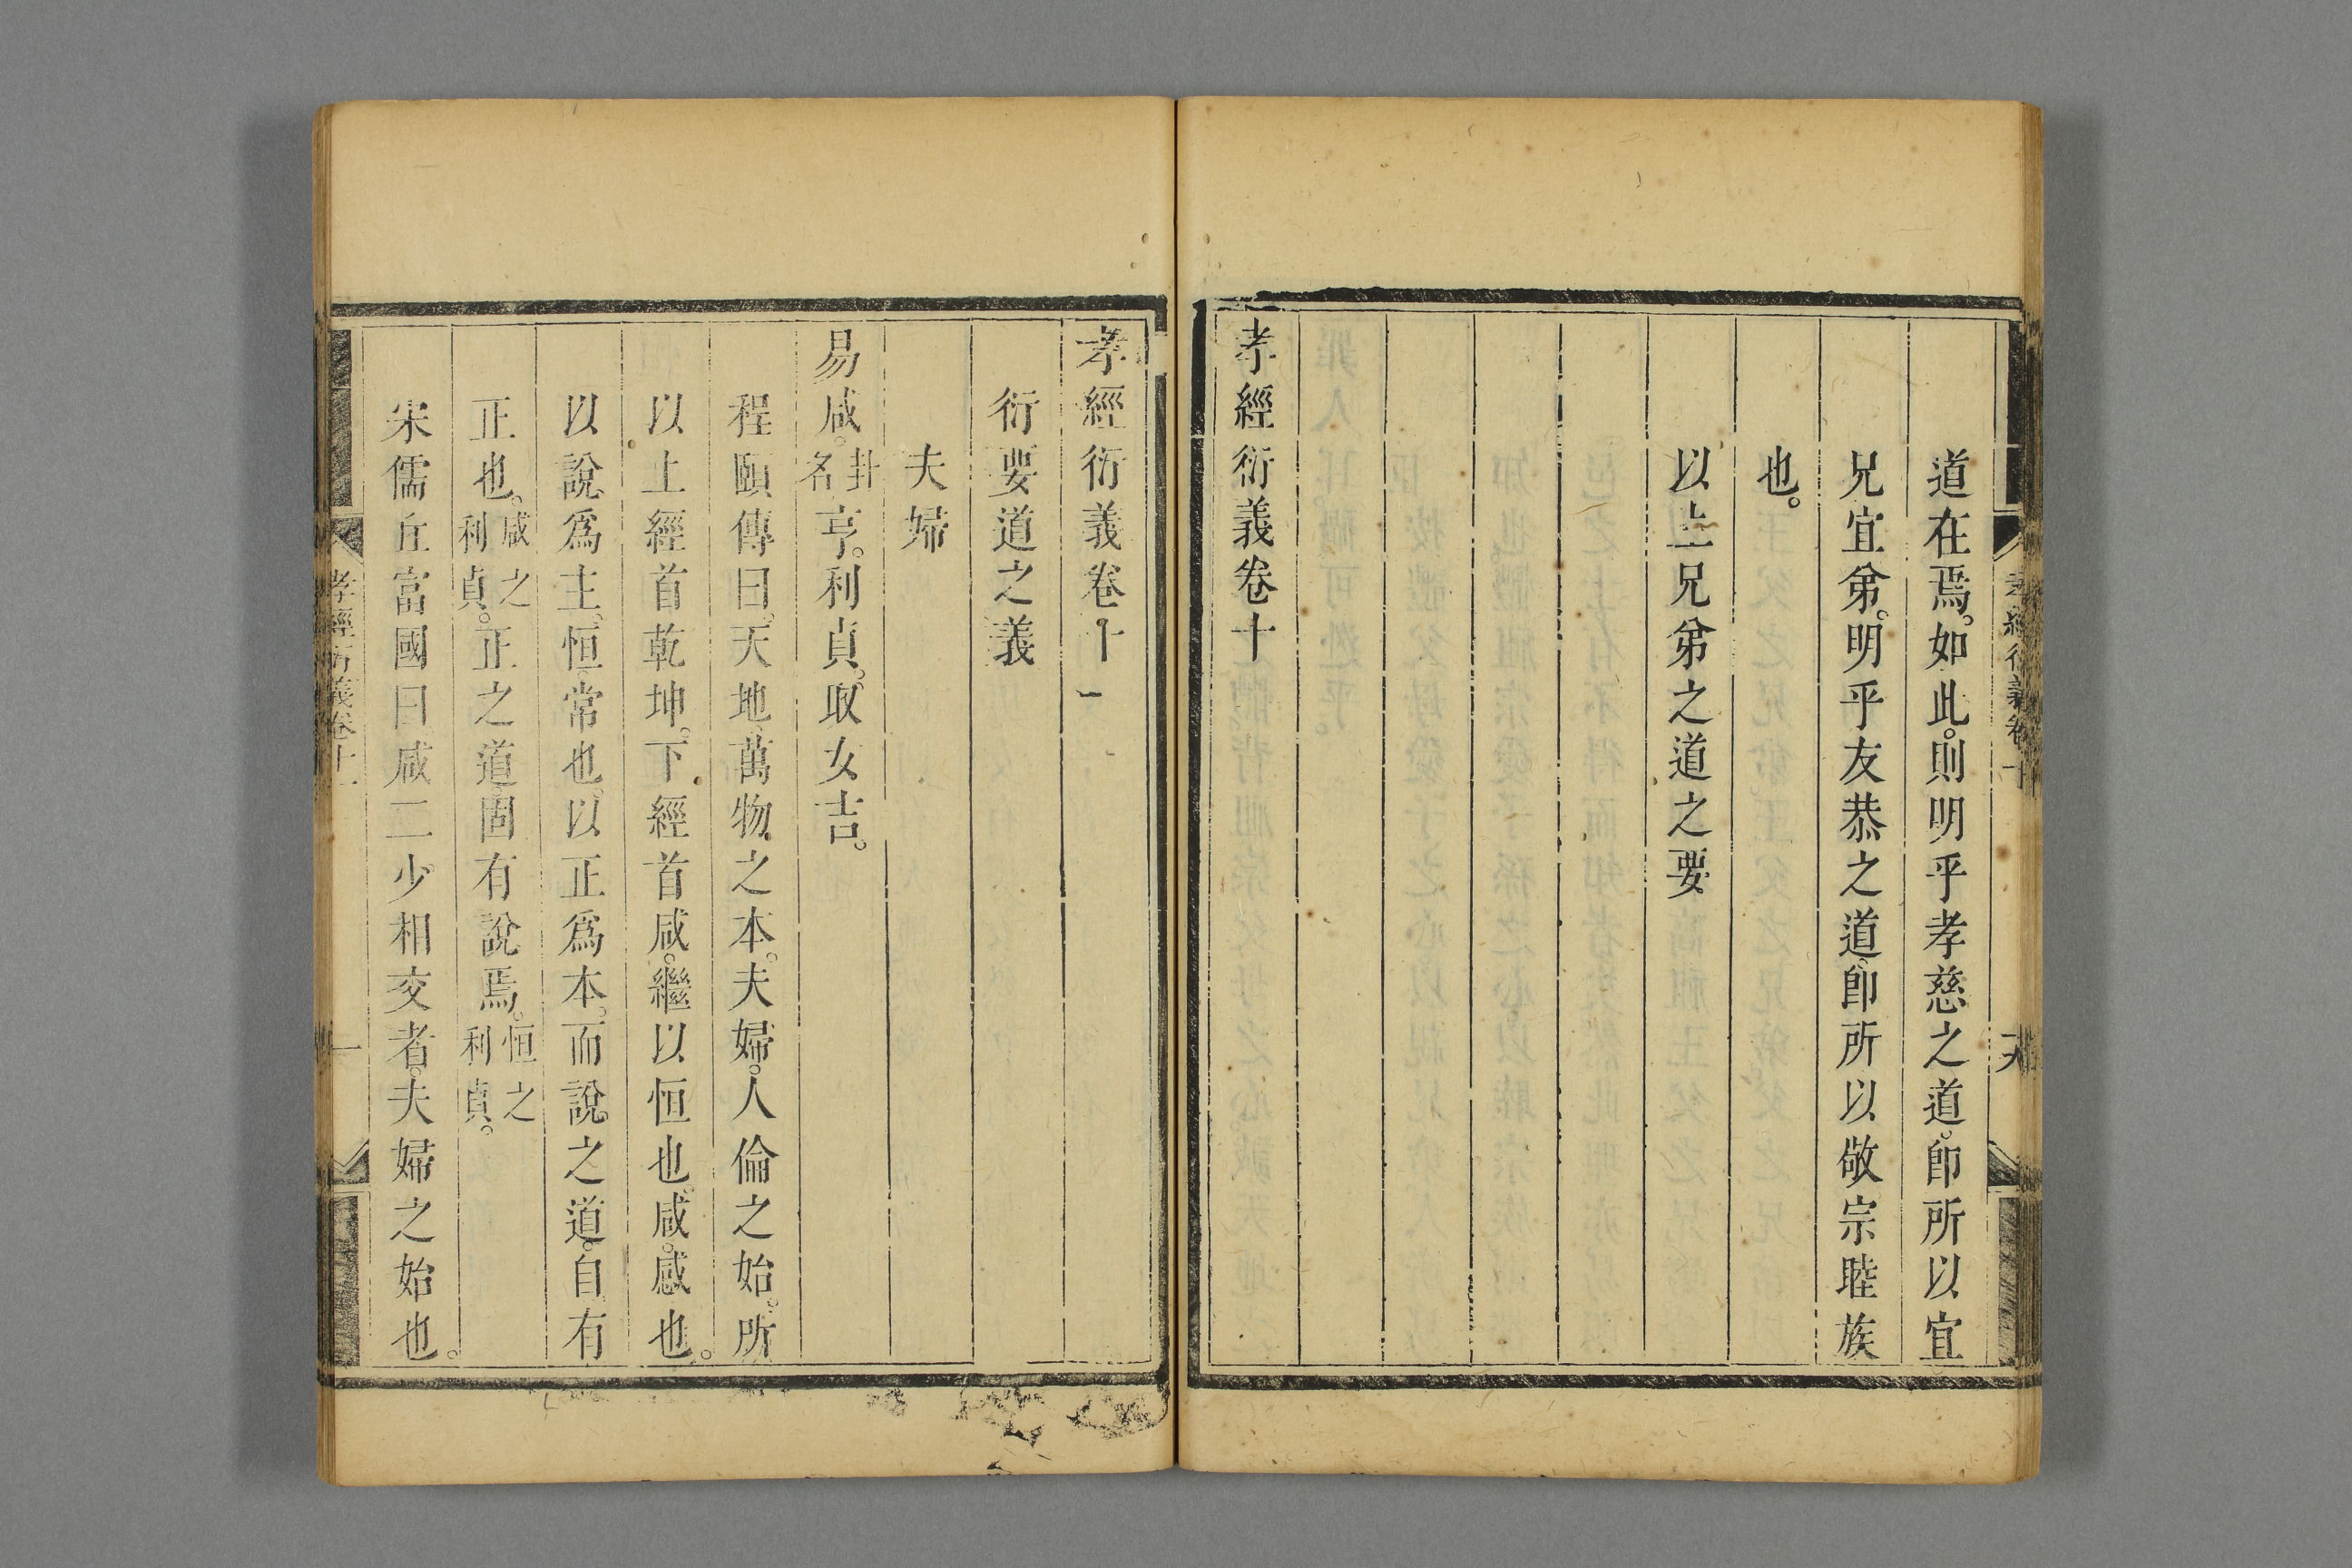 道在焉。如此。則明乎孝慈之道。卽所以宜
兄宜弟。明乎友恭之道。卽所以敬宗睦族
也。
以上兄弟之道之要
孝經衍義卷十
孝經衍義卷十一
衍要道之義
夫婦
易咸。卦名亨。利貞。取女吉。
程頤傳曰。天地萬物之本。夫婦。人倫之始。所
以上經首乾坤。下經首咸。繼以恒也。咸。感也。
以說爲主。恒。常也。以正爲本。而說之道。自有
正也。咸之利貞。正之道。固有說焉。恒之利貞。
宋儒丘富國曰咸二少。相交者。夫婦之始也。
孝經衍義卷十一
一